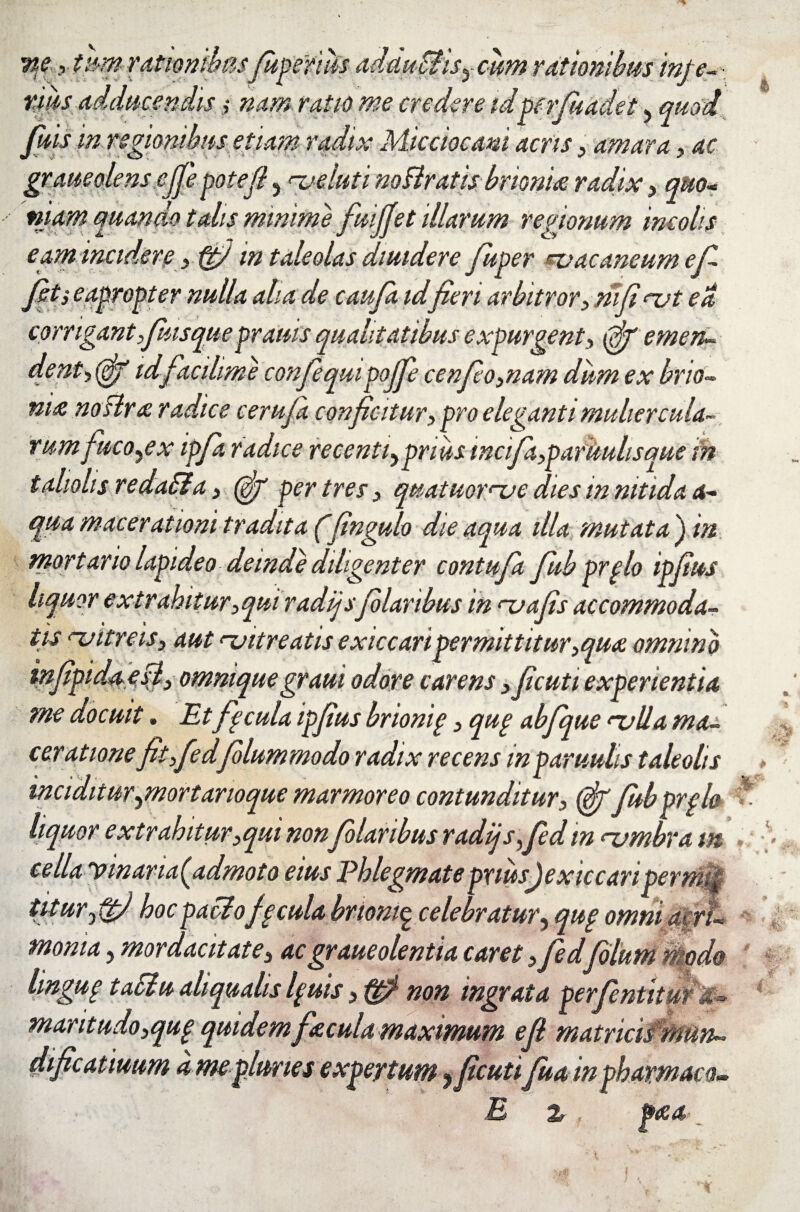 ne, tùm rationibus ſuperiùs adductis, cùm rationibus infe-
riùs adducendis; nam ratio me credere id perſuadet, quod
ſuis in regionibus etiam radix Micciocani acris, amara, ac
graueolens eſſe poteſt, veluti noſtratis brioniæ radix, quo-
niam quando talis minimè fuiſſet illarum regionum incolis
eam incidere, & in taleolas diuidere ſuper vacaneum eſ-
ſet; eapropter nulla alia de cauſa id fieri arbitror, niſi vt eã
corrigant, ſuisque prauis qualitatibus expurgent, & emen-
dent, & id facilimè conſequi poſſe cenſeo, nam dùm ex brio-
niæ noſtræ radice ceruſa conficitur, pro eleganti muliercula-
rum fuco, ex ipſa radice recenti, priùs inciſa, paruulisque in
taliolis redacta, & per tres, quatuorve dies in nitida a-
qua macerationi tradita (ſingulo die aqua illa mutata) in
mortario lapideo deindè diligenter contuſa ſub pręlo ipſius
liquor extrahitur, qui radijs ſolaribus in vaſis accommoda-
tis vitreis, aut vitreatis exiccari permittitur, quæ omninò
inſipida eſt, omnique graui odore carens, ſicuti experientia
me docuit. Et fęcula ipſius brionię, quę abſque vlla ma-
ceratione fit, ſed ſolummodo radix recens in paruulis taleolis
inciditur, mortarioque marmoreo contunditur, & ſub pręlo
liquor extrahitur, qui non ſolaribus radijs, ſed in vmbra in
cella vinaria (admoto eius Phlegmate priùs) exiccari permit
titur, & hoc pacto fęcula brionię celebratur, quę omni acri-
monia, mordacitate, ac graueolentia caret, ſed ſolum modo
linguę tactu aliqualis lęuis, & non ingrata perſentitur a-
maritudo, quę quidem fæcula maximum eſt matricis mun-
dificatiuum à me pluries expertum, ſicuti ſua in pharmaco-
E 2 pæa